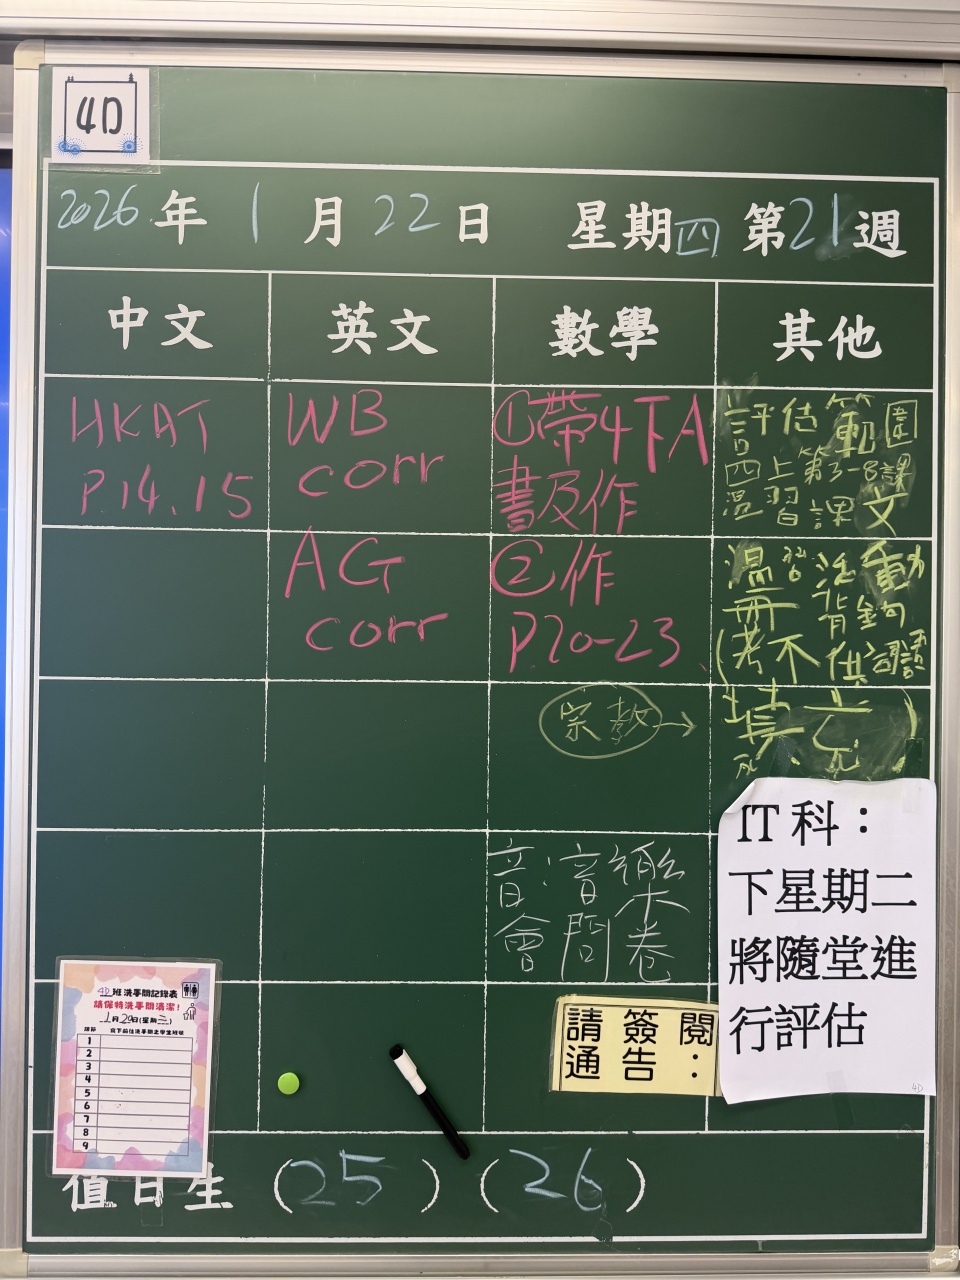 4D
2026年1月22日 星期四 第21週
中文 英文 數學 其他
HKAT
P.14.15
WB
corr
AG
corr
①帶4下A
書及作
②作
P.20-23
宗教→
評估範圍
四上第3-8課
溫習課文
溫習活動
(考不供詞語
填充)
音:音樂
會問卷
IT科：
下星期二
將隨堂進
行評估
4D
請簽閱
通告：
4D班洗手間記錄表
請保持洗手間清潔!
1
2
3
4
5
6
7
8
9
值日生 (25) (26)